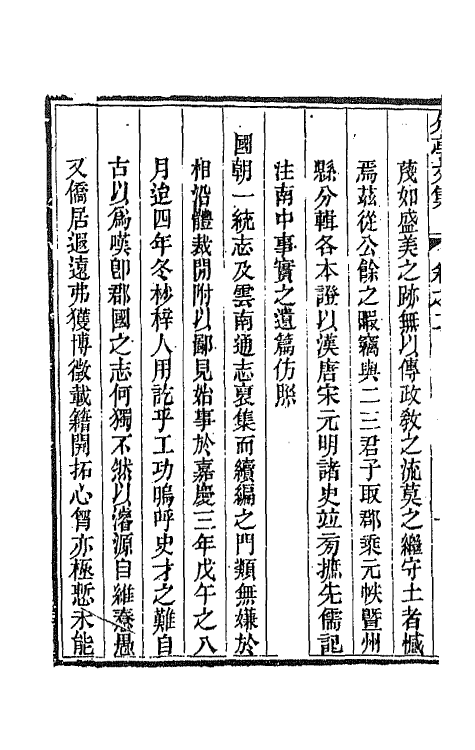 蔑如盛美之跡無以傳政敎之流莫之繼守土者憾
焉茲從公餘之暇竊與二三君子取郡乘元帙曁州
縣分輯各本證以漢唐宋元明諸史竝旁摭先儒記
注南中事實之遺篇仿照
國朝一統志及雲南通志裒集而續編之門類無嫌於
相沿體裁閒附以鄙見始事於嘉慶三年戊午之八
月迨四年冬杪梓人用訖乎工功嗚呼史才之難自
古以爲嘆卽郡國之志何獨不然以濬源自維憃愚
又僑居遐遠弗獲博徵載籍開拓心胷亦極慙未能